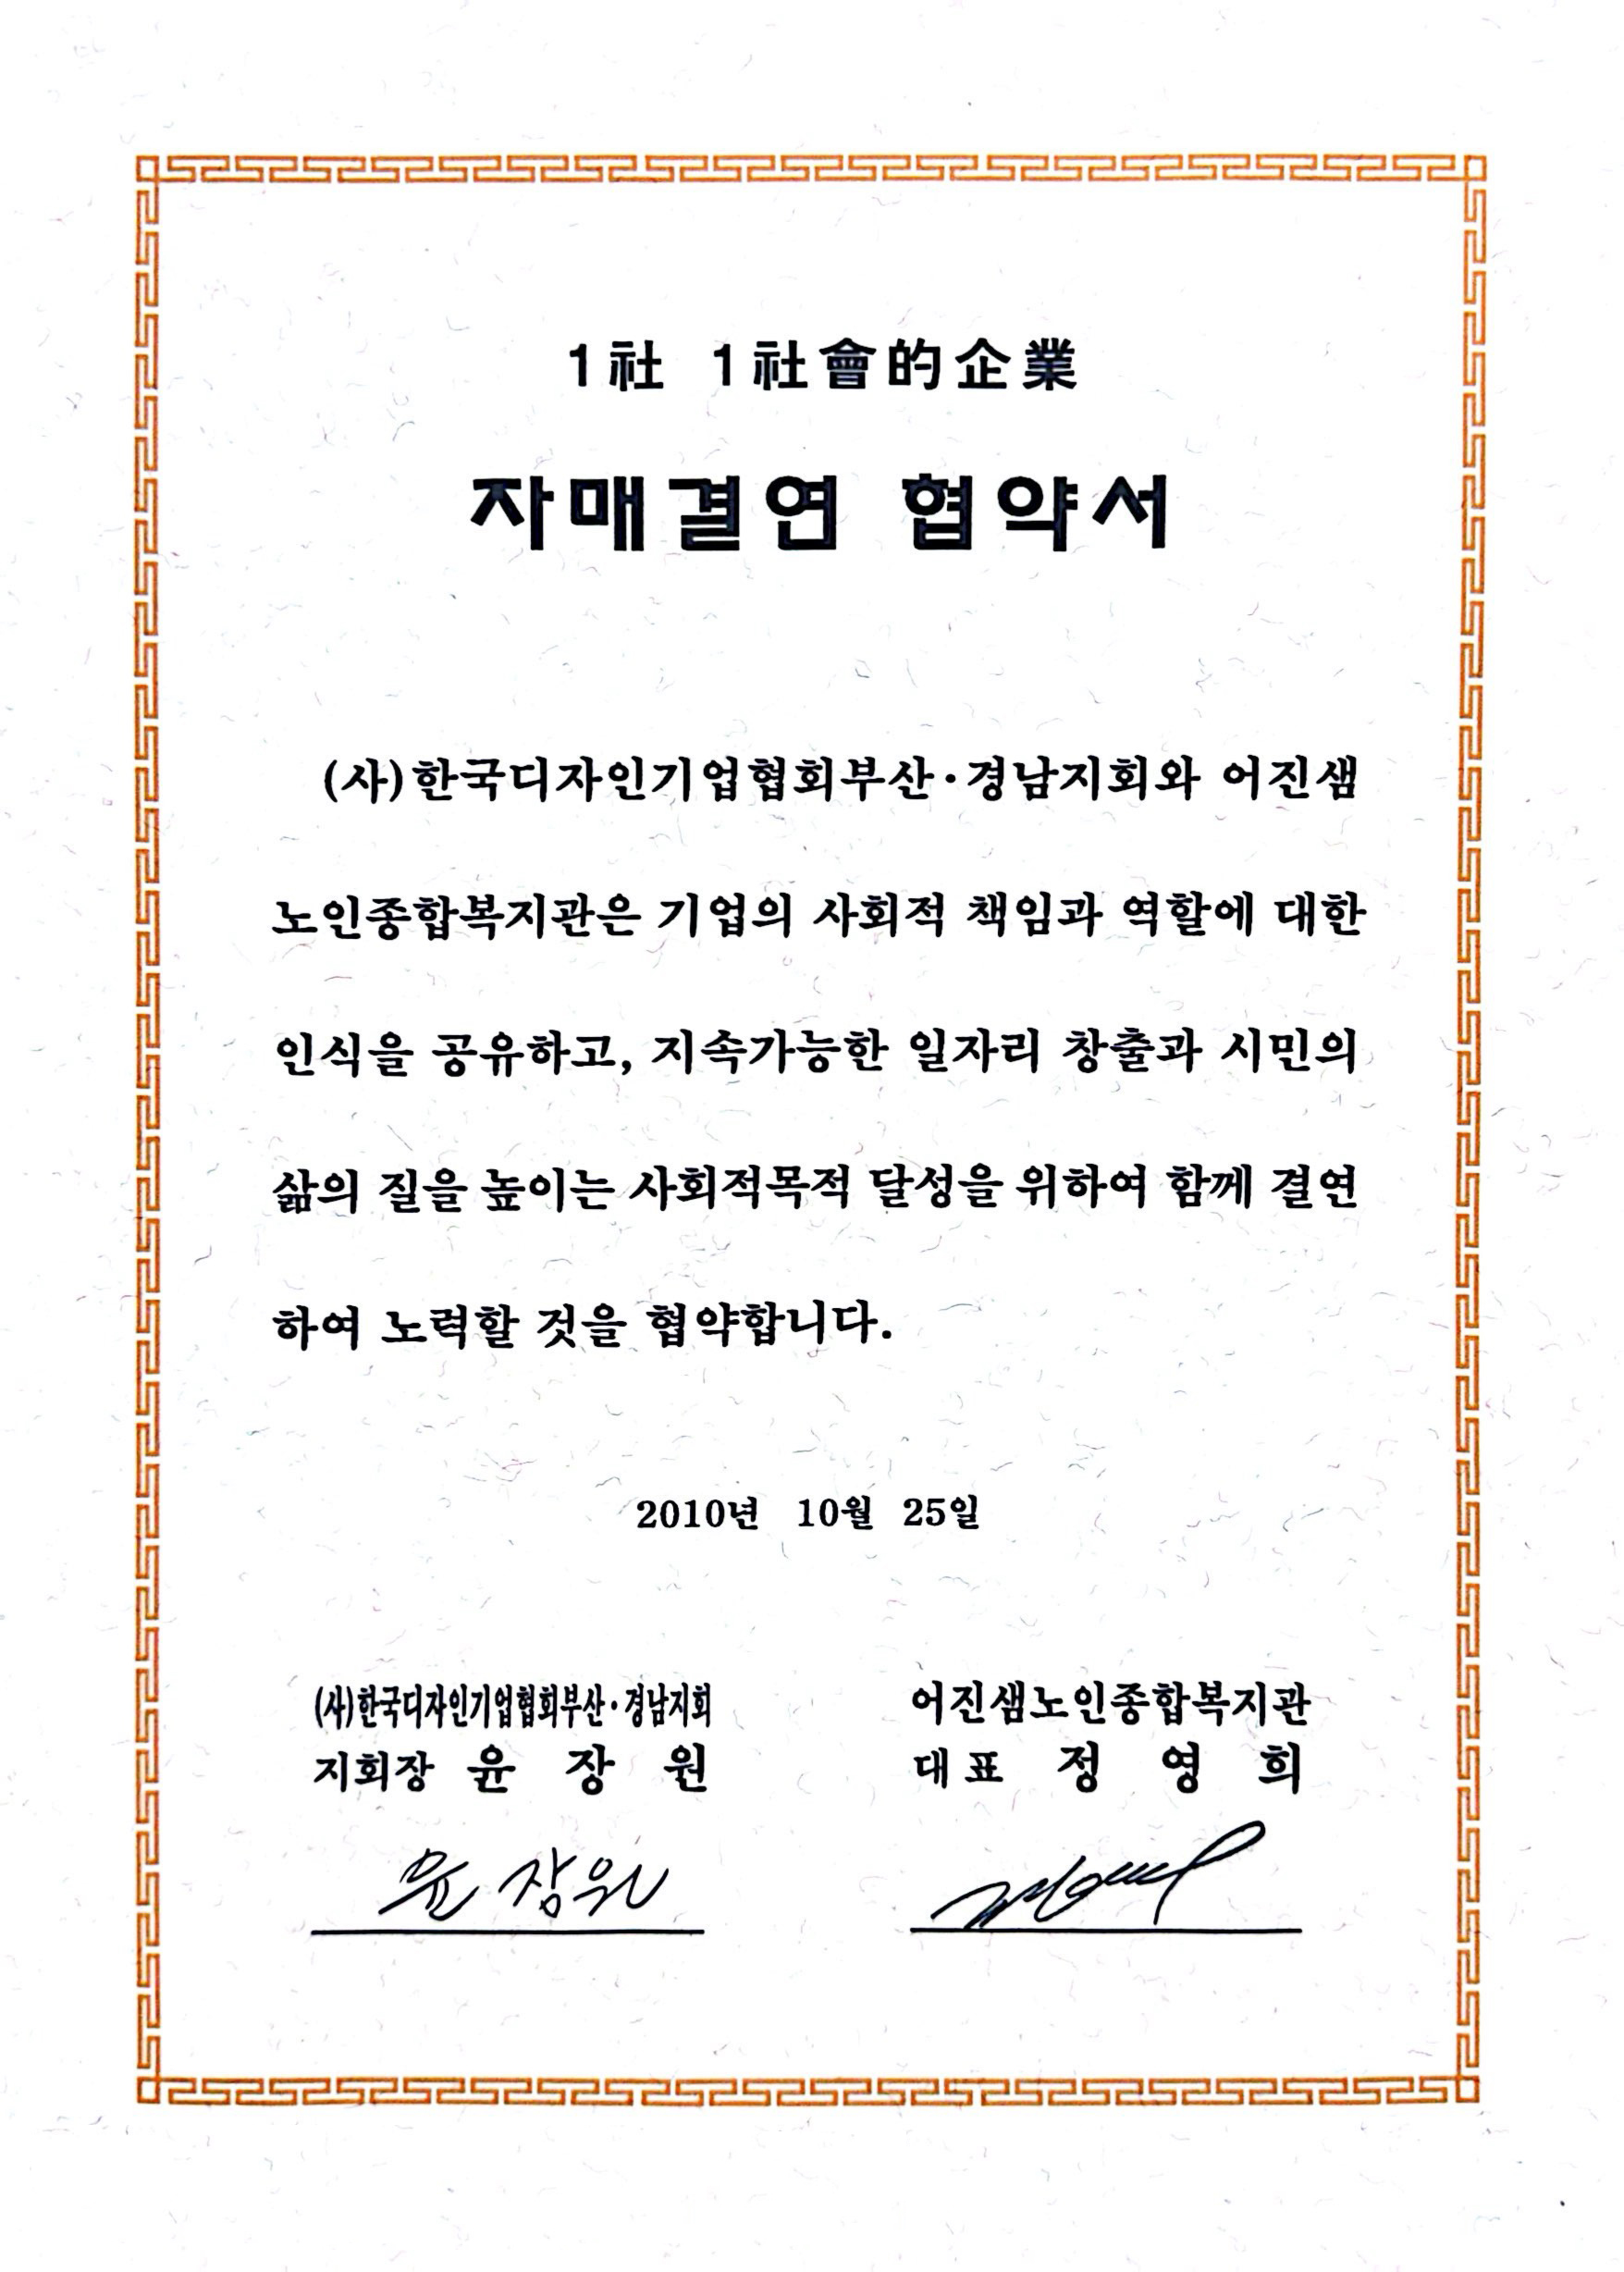 1社 1社會的企業
자매결연 협약서
(사)한국디자인기업협회부산·경남지회와 어진샘
노인종합복지관은 기업의 사회적 책임과 역할에 대한
인식을 공유하고, 지속가능한 일자리 창출과 시민의
삶의 질을 높이는 사회적목적 달성을 위하여 함께 결연
하여 노력할 것을 협약합니다.
2010년 10월 25일
(사)한국디자인기업협회부산·경남지회
지회장 윤 장 원
윤장원
어진샘노인종합복지관
대표 정 영 희